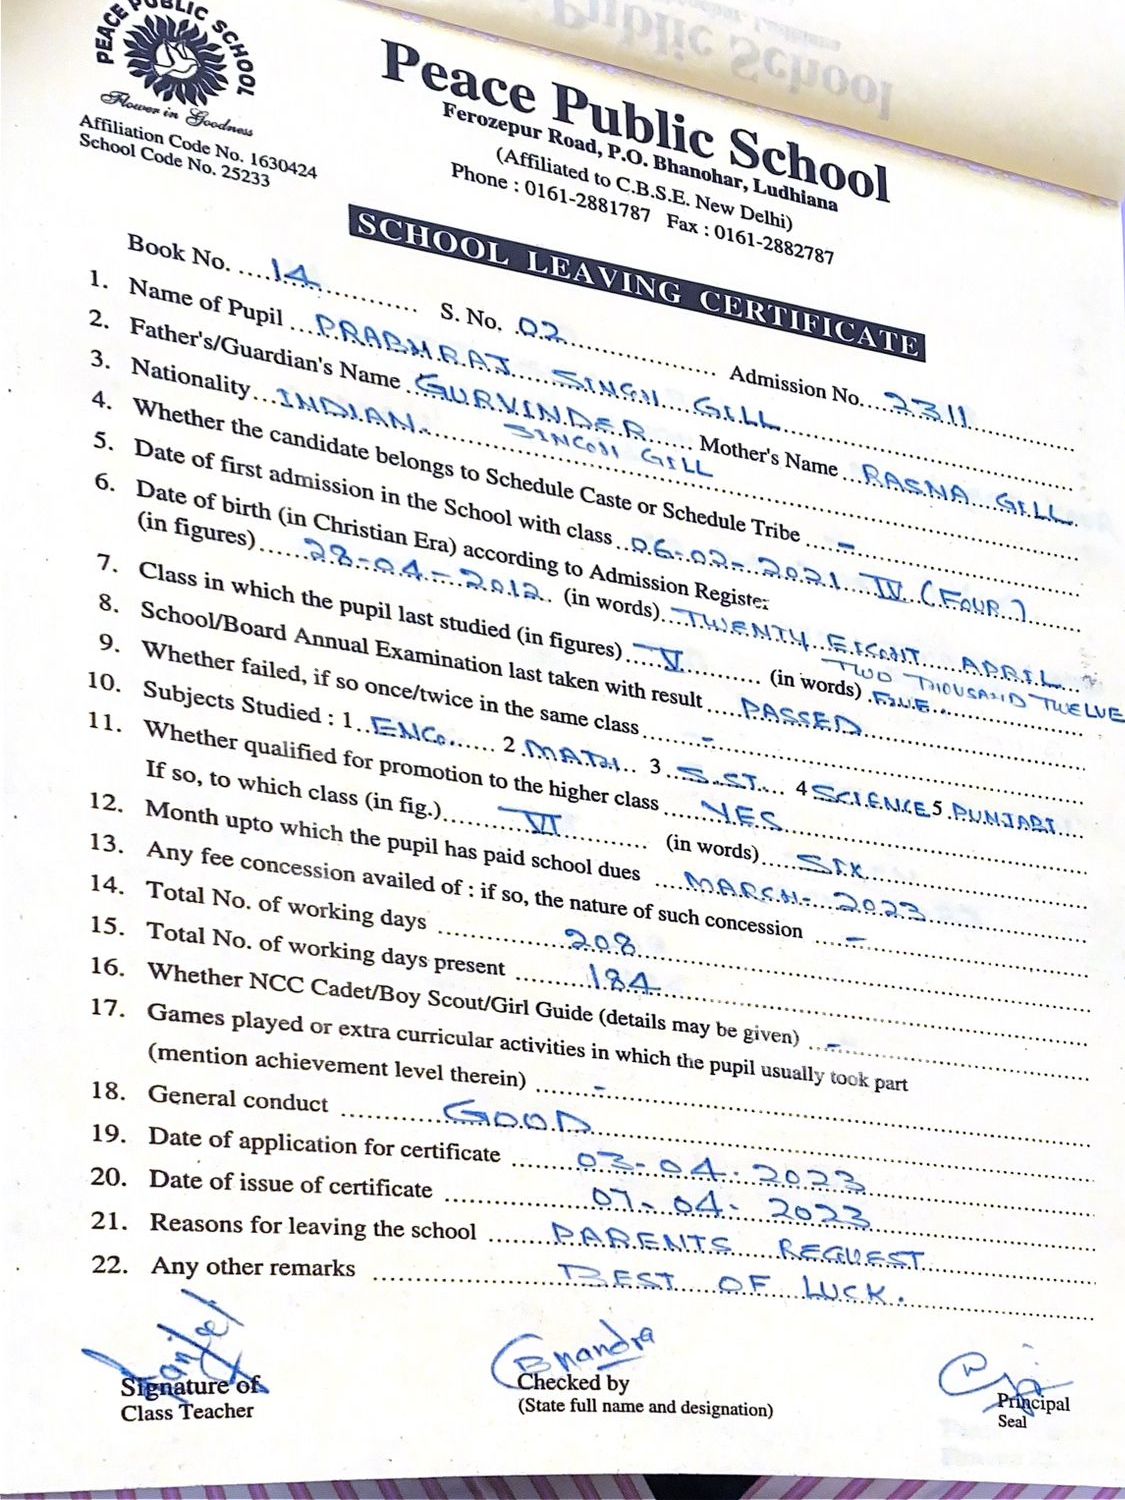 PEACE PUBLIC SCHOOL
Flower in Goodness
Affiliation Code No. 1630424
School Code No. 25233
Peace Public School
Ferozepur Road, P.O. Bhanohar, Ludhiana
(Affiliated to C.B.S.E. New Delhi)
Phone : 0161-2881787 Fax : 0161-2882787
SCHOOL LEAVING CERTIFICATE
Book No. ....14.... S. No. 02.... Admission No. ...2311...
1. Name of Pupil ...PRABHRAJ SINGH GILL...
2. Father's/Guardian's Name GURVINDER SINGH GILL Mother's Name RASNA GILL
3. Nationality...INDIAN....
4. Whether the candidate belongs to Schedule Caste or Schedule Tribe ...-...
5. Date of first admission in the School with class ..06-02-2021 IV (FOUR)
6. Date of birth (in Christian Era) according to Admission Register
(in figures)....28-04-2012.. (in words) TWENTY EIGHT APRIL TWO THOUSAND TWELVE
7. Class in which the pupil last studied (in figures) ...V... (in words) FIVE...
8. School/Board Annual Examination last taken with result ...PASSED...
9. Whether failed, if so once/twice in the same class ...-...
10. Subjects Studied : 1..ENG...... 2.MATH.. 3..S.ST.... 4 SCIENCE 5.PUNJABI...
11. Whether qualified for promotion to the higher class ...YES...
If so, to which class (in fig.)...VI... (in words)...SIX...
12. Month upto which the pupil has paid school dues ...MARCH-2023...
13. Any fee concession availed of : if so, the nature of such concession ...-...
14. Total No. of working days ...208...
15. Total No. of working days present ...184...
16. Whether NCC Cadet/Boy Scout/Girl Guide (details may be given) ...-...
17. Games played or extra curricular activities in which the pupil usually took part
(mention achievement level therein) ...-...
18. General conduct ...GOOD...
19. Date of application for certificate ...03-04-2023...
20. Date of issue of certificate ...07-04-2023...
21. Reasons for leaving the school ...PARENTS REQUEST...
22. Any other remarks ...BEST OF LUCK.
Signature of
Class Teacher
Checked by
(State full name and designation)
Principal
Seal